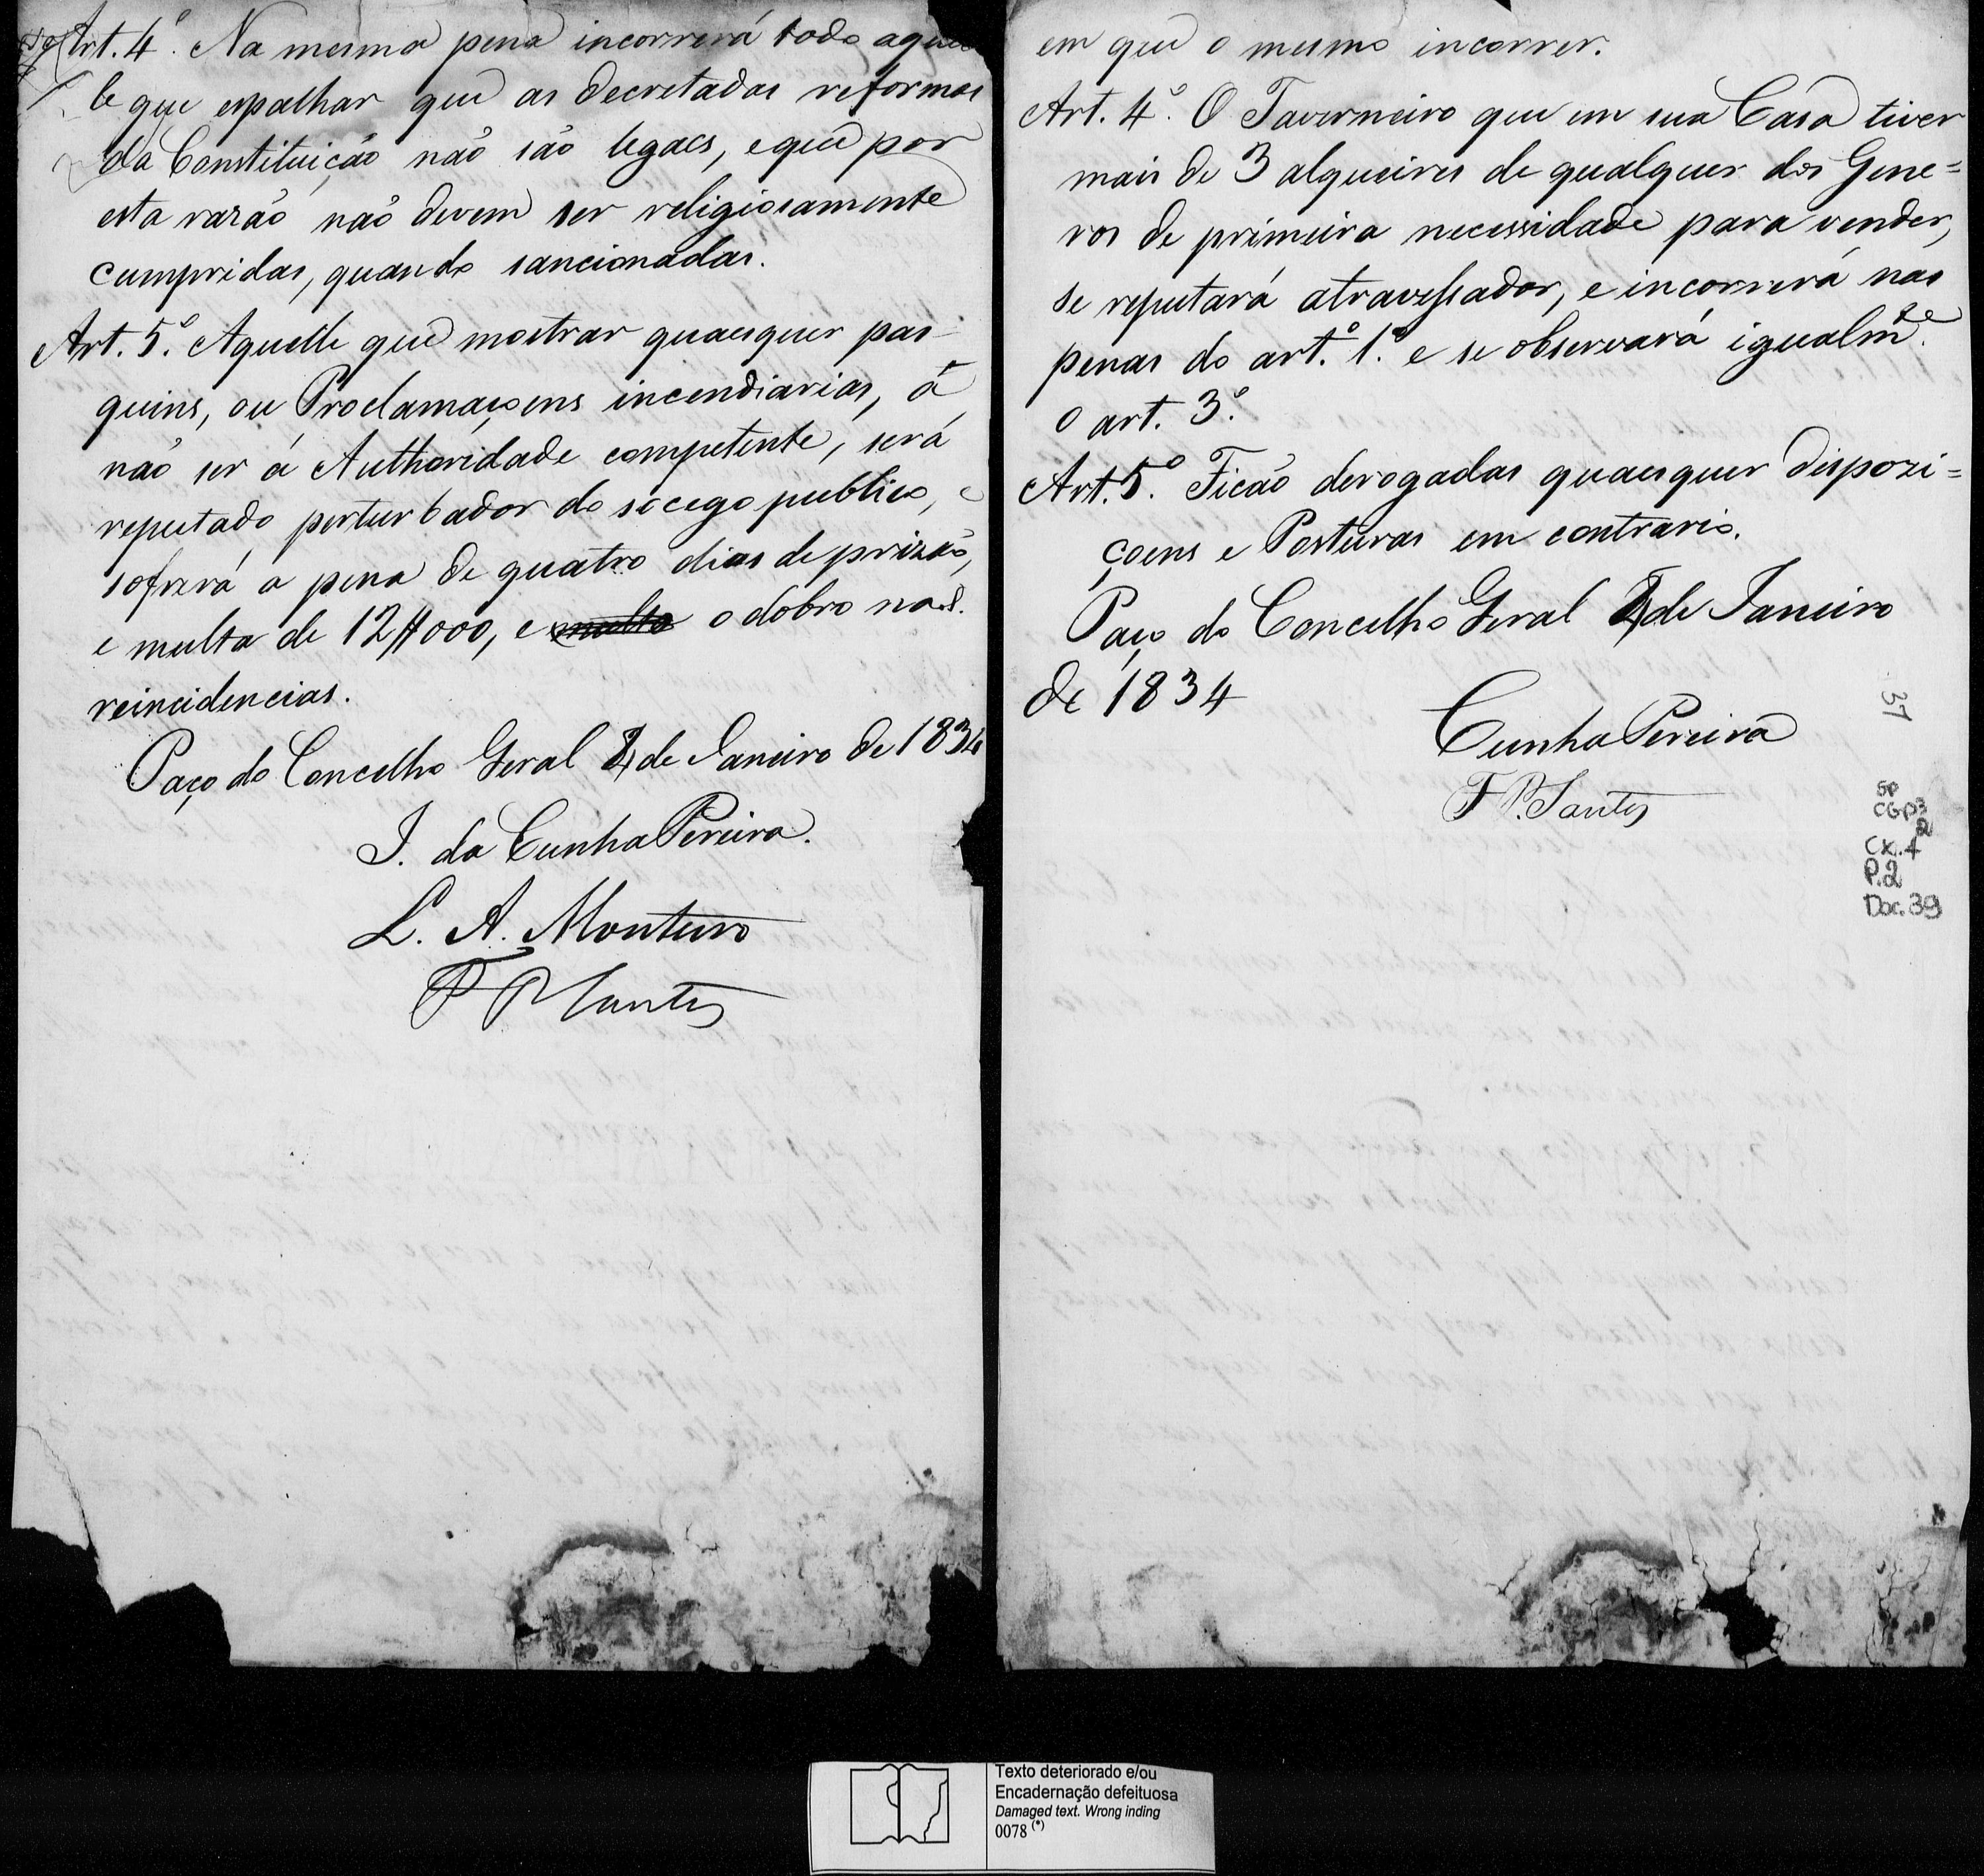 Art. 4.º Na mesma pena incorrerá todo aquel
le que espalhar que as decretadas reformas
da Constituição não são legaes, e que por
esta razão não devem ser religiosamente
cumpridas, quando sancionadas.
Art. 5.º Aquelle que mostrar quaesquer pas-
quins, ou Proclamaçoens incendiarias, á
não ser á Authoridade competente, será
reputado perturbador do socego publico, e
sofrerá a pena de quatro dias de prizão,
e multa de 12$000, e multa o dobro nas
reincidencias.
Paço do Concelho Geral de Janeiro de 1834
J. da Cunha Pereira.
L. A. Monteiro
F P Santos
em que o mesmo incorrer.
Art. 4.º O Taverneiro que em sua Casa tiver
mais de 3 alqueires de qualquer dos Gene=
ros de primeira necessidade para vender,
se reputará atravessador, e incorrerá nas
penas do art.º 1.º e se observará igualm.te
o art. 3.º
Art. 5.º Ficão derogadas quaesquer dispozi=
çoens e Posturas em contrario.
Paço do Concelho Geral de Janeiro
de 1834
Cunha Pereira
F P. Santos
37
SP
CGP3
Cx. 4
P.2
Doc. 39
Texto deteriorado e/ou
Encadernação defeituosa
Damaged text. Wrong inding
0078 (*)